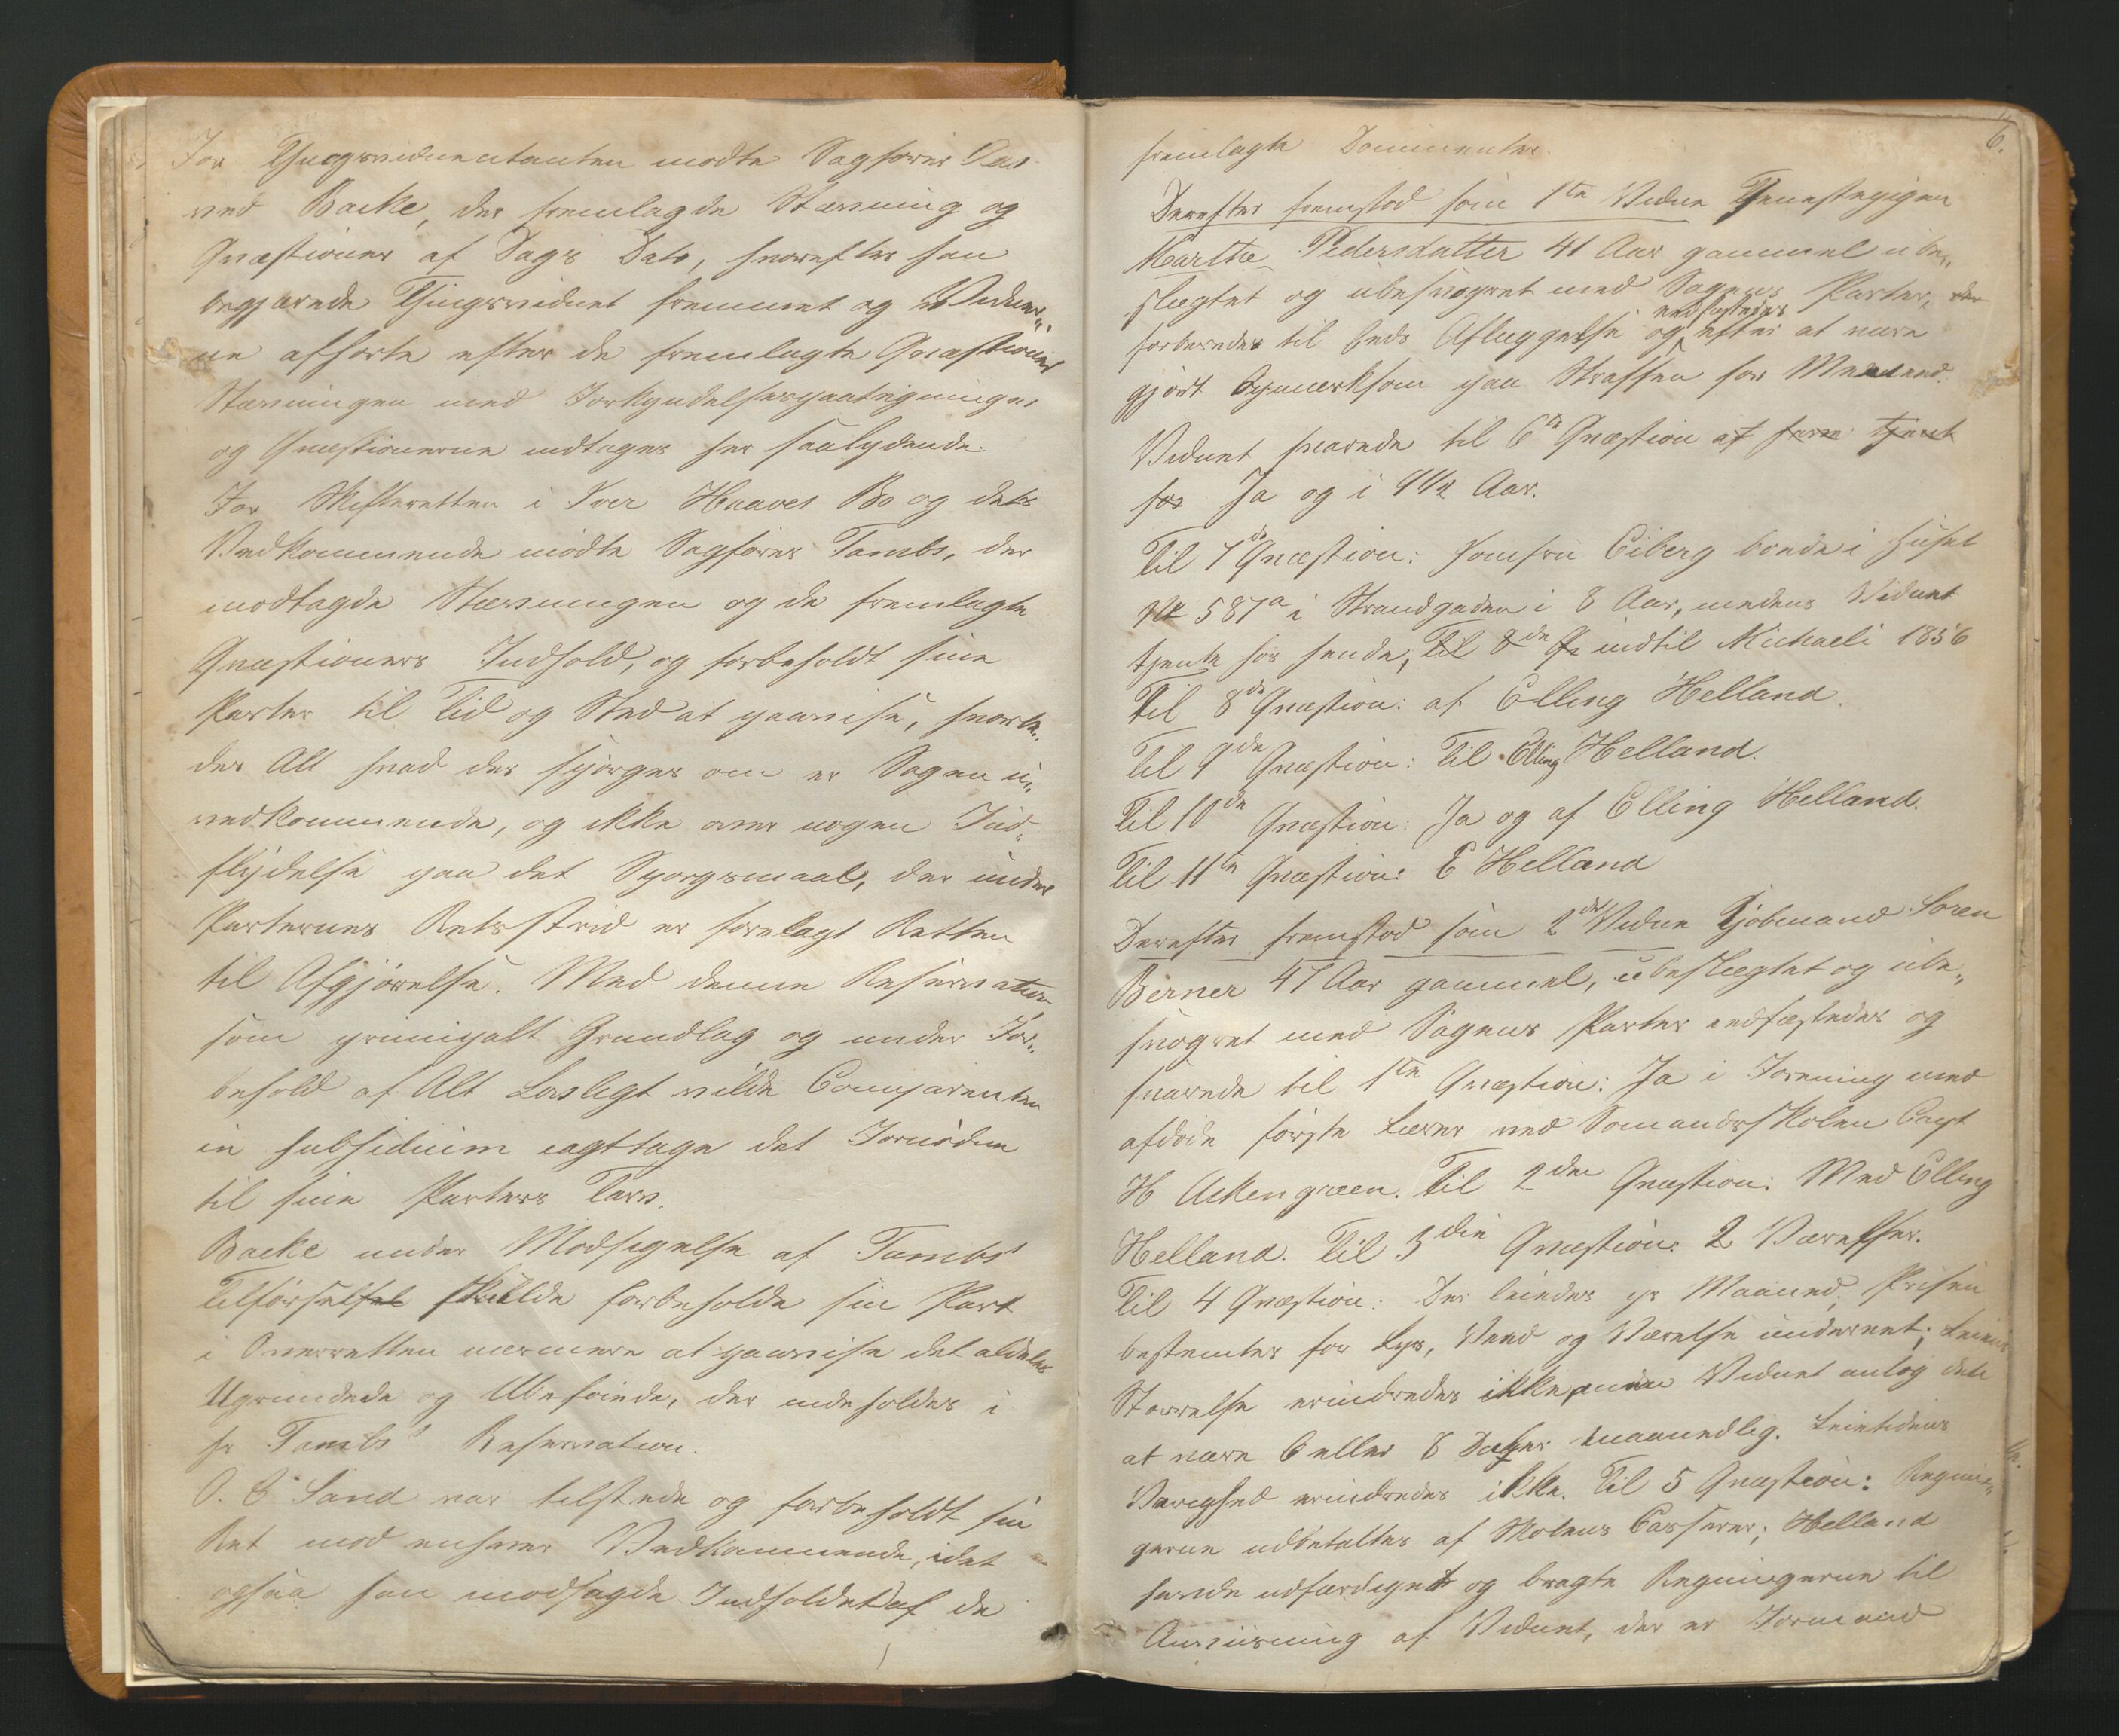 For Thingsvidnecitanten mødte Sagfører Aas
ved Backe, der fremlagde Stævning og
Qvæstioner af Dags Dato, hvorefter han
begjærede Thingsvidnet fremmet og Vidner„
ne afhørte efter de fremlagte Qvæstioner
Stævningen med Forkyndelsespaategninger
og Qvæstionerne indtages her saalydende.
For Skifteretten i Iver Haaves Bo og dets
Vedkommende mødte Sagfører Tambs, der
modtagde Stævningen og de fremlagte
Qvæstioners Indhold, og forbeholdt sine
Parter til Tid og Sted at paavise, hvorle„
des Alt hvad der spørges om er Sagen u„
vedkommende, og ikke over nogen Ind„
flydelse paa det Spørgsmaal, der under
Parternes Retsstrid er forelagt Retten
til Afgjørelse. Med denne Reservation
som principalt Grundlag og under For„
behold af Alt Lovligt vilde Comparenten
in subsidium iagttage det Fornødne
til sine Parters Tarv.
Backe under Modsigelse af Tambs'
Tilførsel skulde forbeholde sin Part
i Overretten nærmere at paavise det aldeles
Ugrundede og Ubeføiede, der indeholdes i
hr Tambs' Reservation.
O. E Sand var tilstede og forbeholdt sin
Ret mod enhver Vedkommende, idet
ogsaa han modsagde Indholdet af de
6.
fremlagte Documenter.
Derefter fremstod som 1te Vidne Tjenestepigen
Marthe Pedersdatter 41 Aar gammel ube„
slægtet og ubesvogret med Sagens Parter, der
forberedes til Eeds Aflæggelse og edfæstedes efter at være
gjort opmærksom paa Straffen for Meeneed.
Vidnet svarede til 6te Qvæstion at have tjent
hos Ja og i 9 1/2 Aar.
Til 7de Qvæstion: Jomfru Eiberg boede i Huset
No 587a i Strandgaden i 8 Aar, medens Vidnet
tjente hos hende, Til 8de Qv indtil Michaeli 1856
Til 8de Qvæstion: af Elling Helland.
Til 9de Qvæstion: Til Elling Helland.
Til 10de Qvæstion: Ja og af Elling Helland.
Til 11te Qvæstion: E Helland
Derefter fremstod som 2det Vidne Kjøbmand Søren
Berner 47 Aar gammel, ubeslægtet og ube„
svogret med Sagens Parter edfæstedes og
svarede til 1te Qvæstion: Ja i Forening med
afdøde første Lærer ved Sømandsskolen Capt
H Ackengreen. Til 2den Qvæstion: Med Elling
Helland. Til 3die Qvæstion: 2 Værelser.
Til 4 Qvæstion: Der leiedes pr Maaned; Prisen
bestemtes for Lys, Veed og Værelse undereet; Leiens
Størrelse erindredes ikke, men Vidnet antog den
at være 6 eller 8 Daler maanedlig. Leietidens
Varighed erindredes ikke. Til 5 Qvæstion: Regnin„
gerne udbetaltes af Skolens Casserer; Helland
havde udfærdiget og bragte Regningerne til
Anviisning af Vidnet, der er Formand